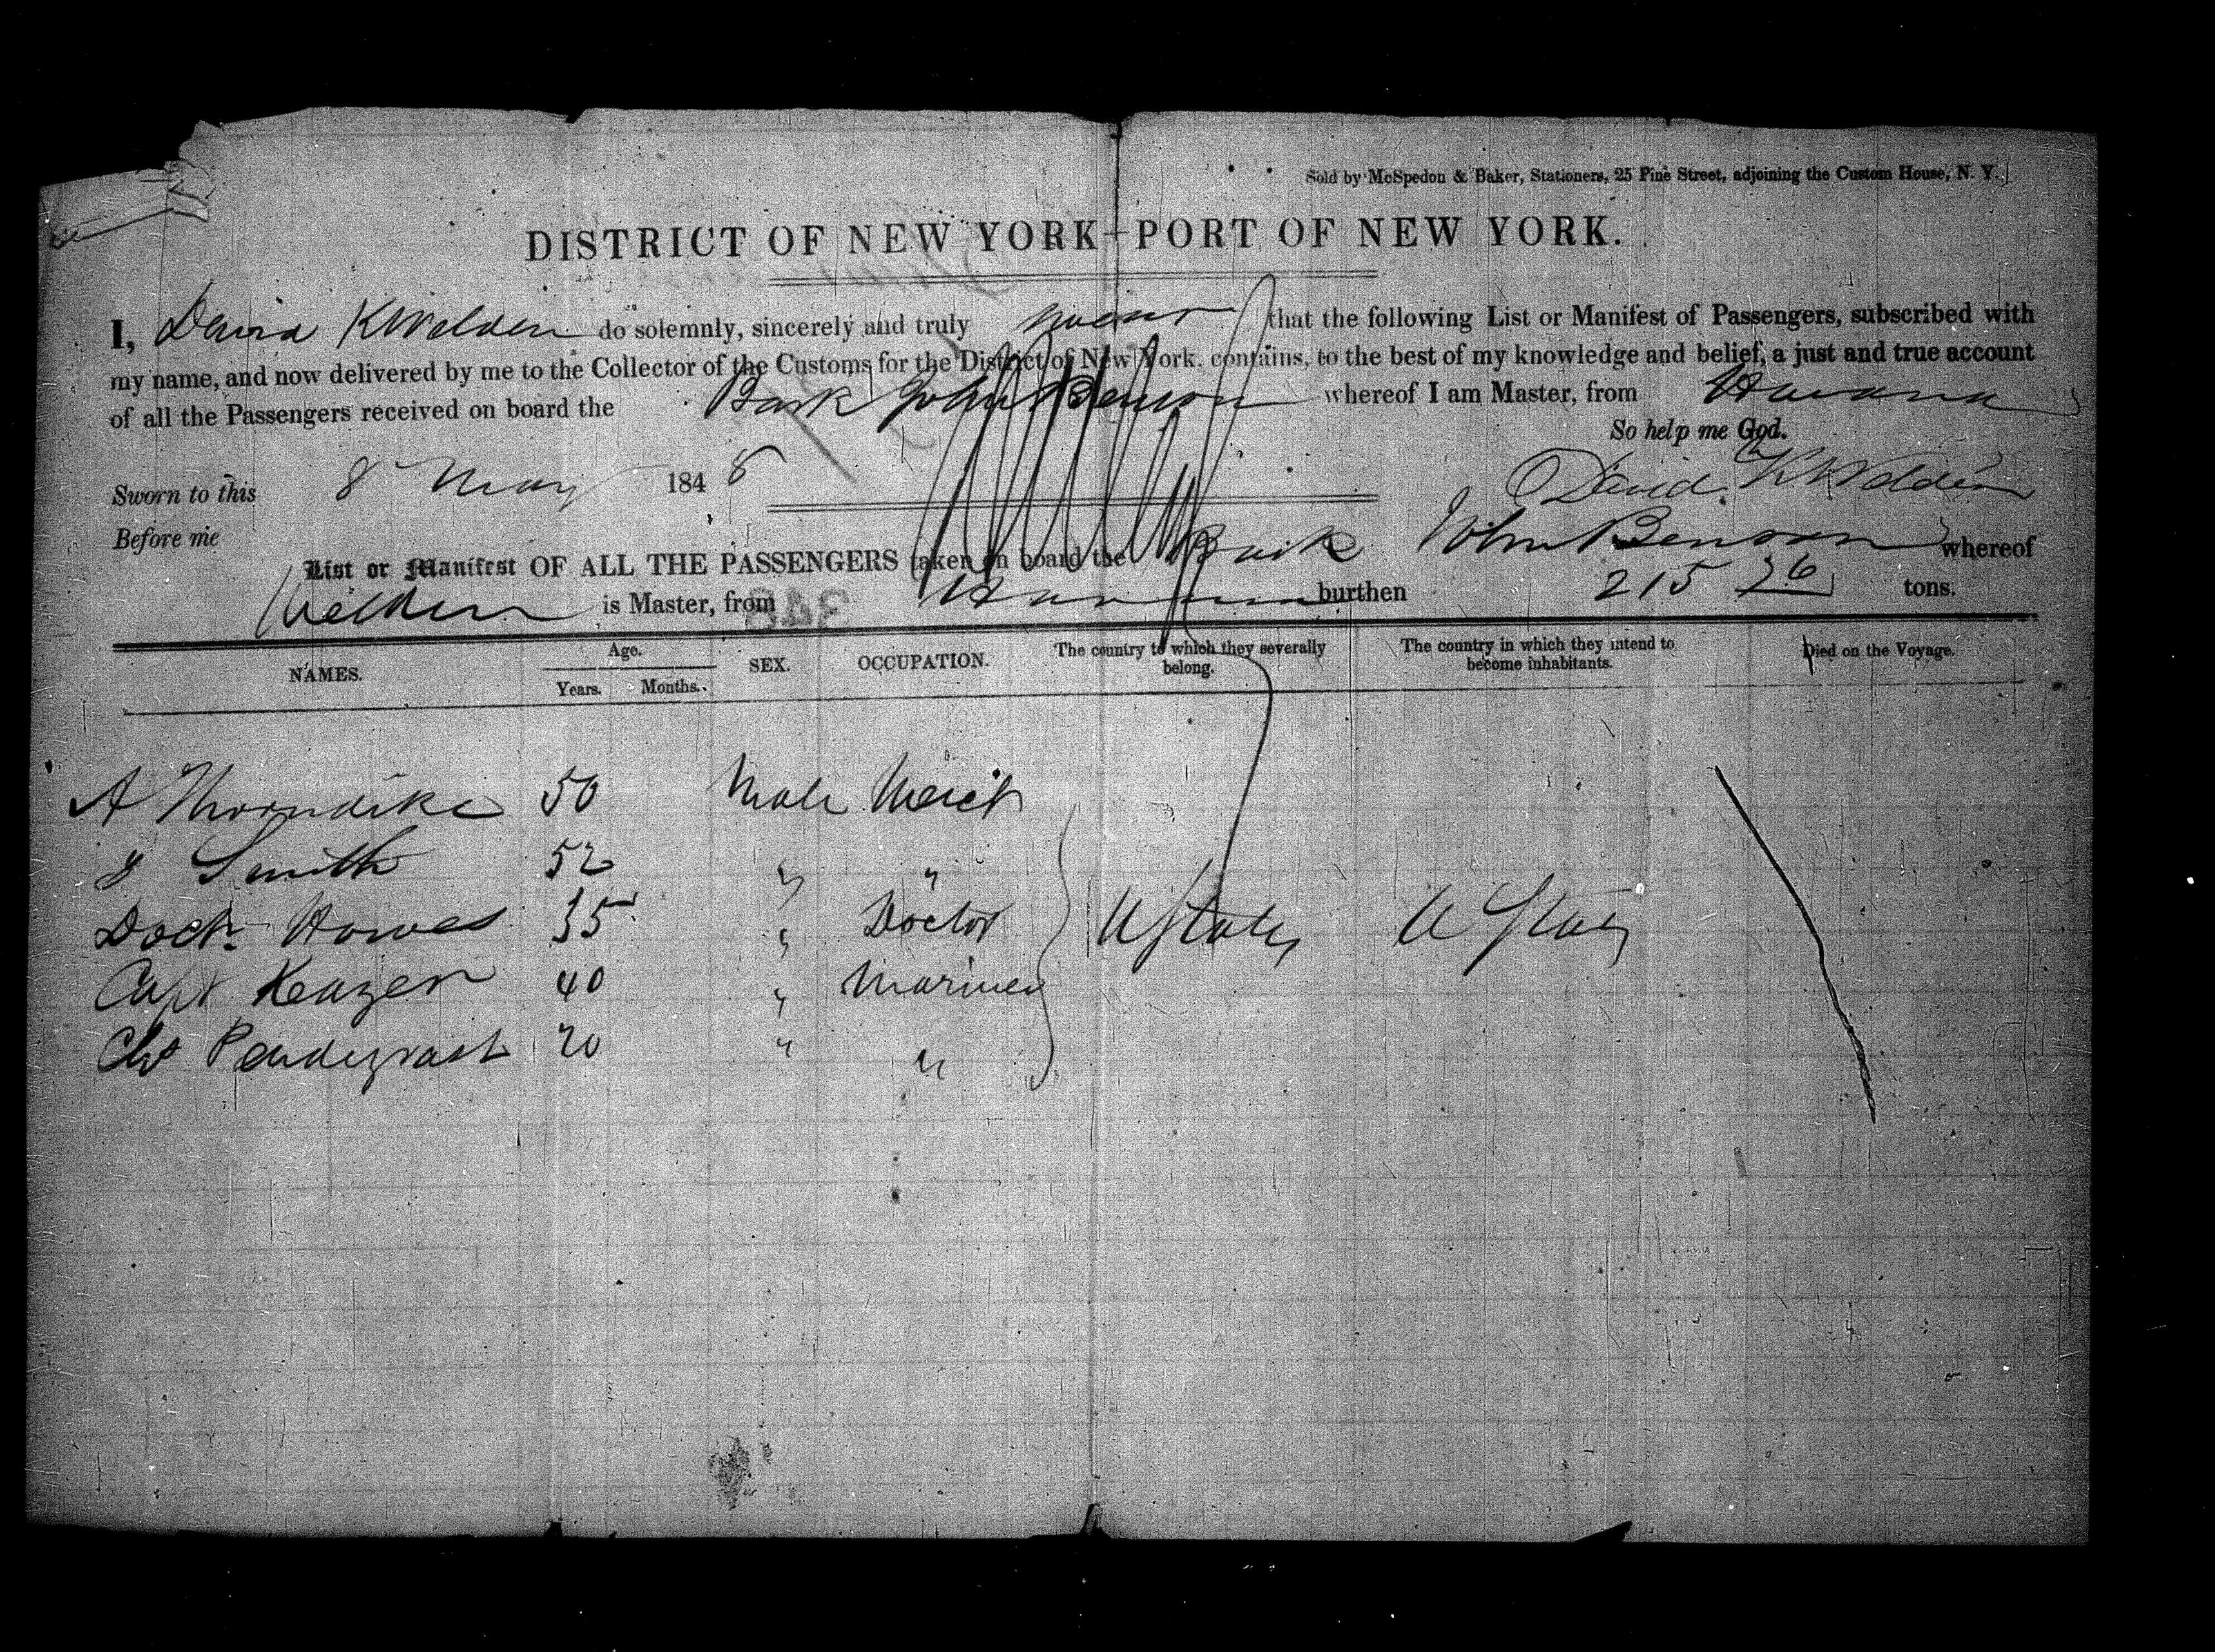 Sold by McSpedon & Baker, Stationers, 25 Pine Street, adjoining the Custom House, N. Y.
DISTRICT OF NEW YORK—PORT OF NEW YORK.
I, David K Welden do solemnly, sincerely and truly swear that the following List or Manifest of Passengers, subscribed with
my name, and now delivered by me to the Collector of the Customs for the District of New York, contains, to the best of my knowledge and belief, a just and true account
of all the Passengers received on board the Bark John Benson whereof I am Master, from Havana
So help me God.
Sworn to this 8 May 1848
David K Welden
Before me
List or Manifest OF ALL THE PASSENGERS taken on board the Bark John Benson whereof
Welden is Master, from Havana burthen 215 tons.
NAMES. Age. Years. Months. SEX. OCCUPATION. The country to which they severally belong. The country in which they intend to become inhabitants. Died on the Voyage.
A Thorndike 50 Male Merct
Smith 52 " "
Doct Howes 35 " Doctor U States U States
Capt 40 " Mariner
Pendergrast 20 " "